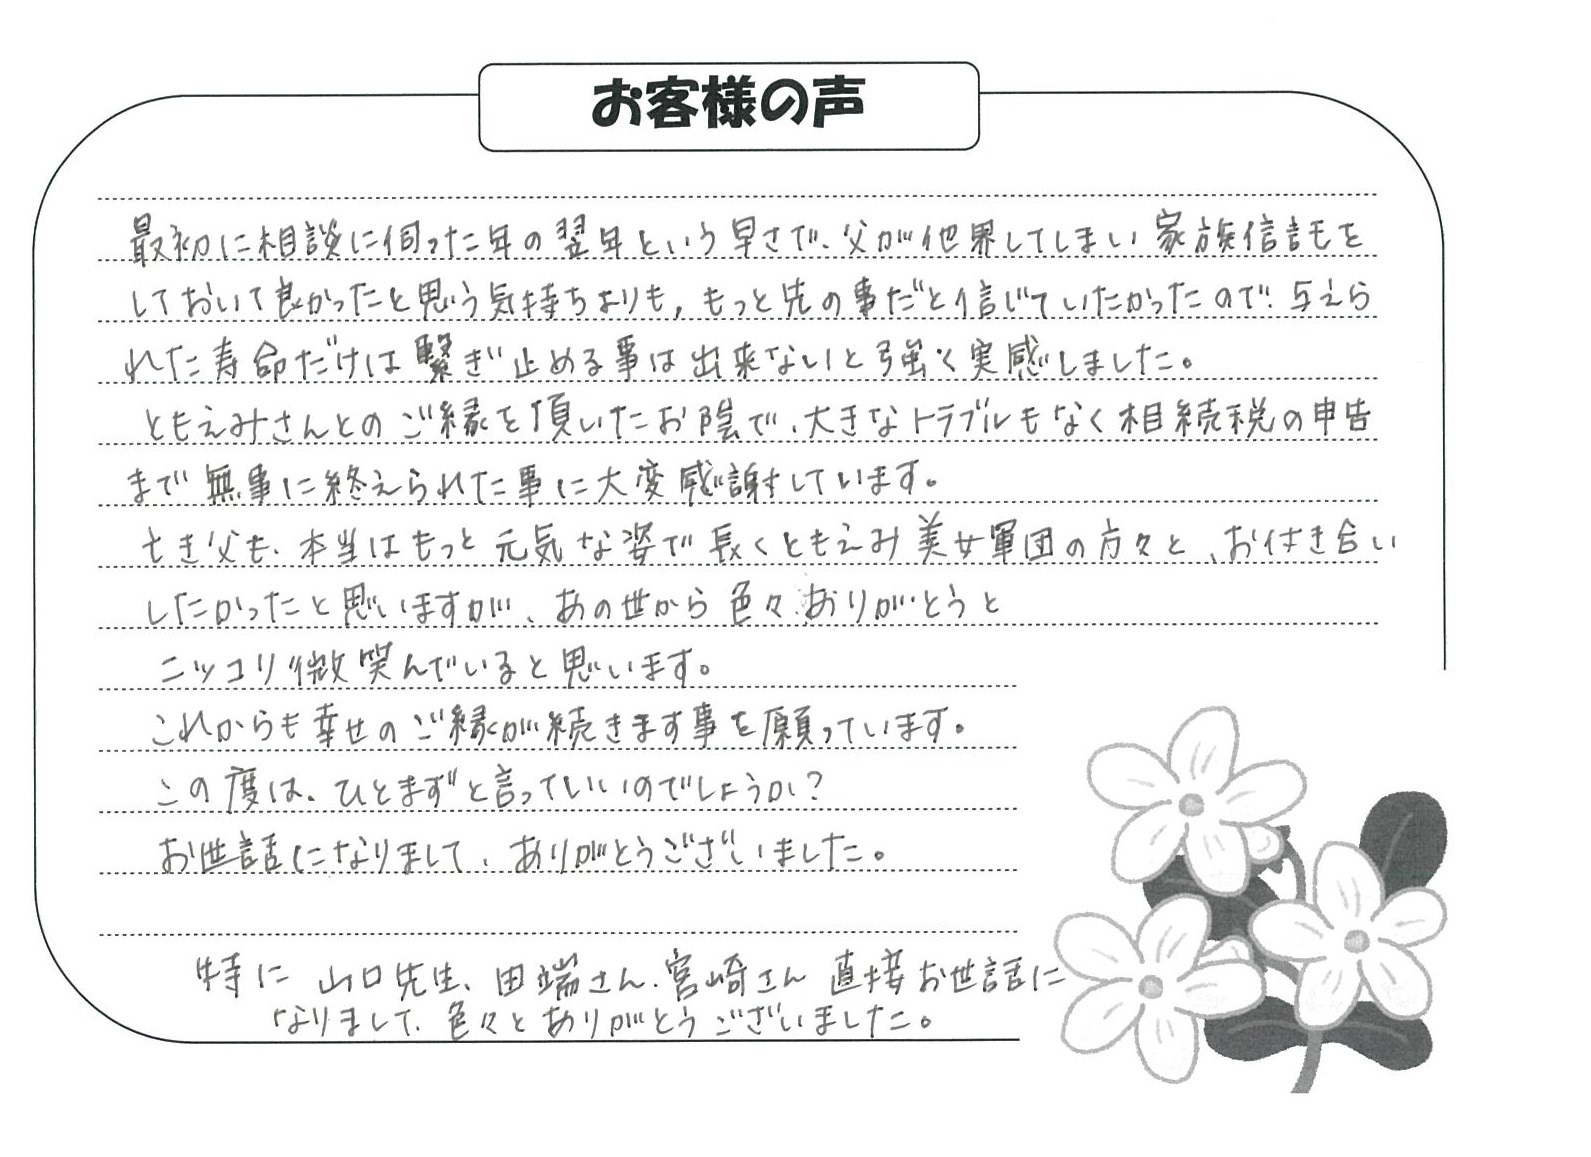 お客様の声
最初に相談に伺った年の翌年という早さで、父が他界してしまい家族信託を
しておいて良かったと思う気持ちよりも、もっと先の事だと信じていたかったので、与えら
れた寿命だけは繋ぎ止める事は出来ないと強く実感しました。
ともえみさんとのご縁を頂いたお陰で、大きなトラブルもなく相続税の申告
まで無事に終えられた事に大変感謝しています。
亡き父も、本当はもっと元気な姿で長くともえみ美女軍団の方々と、お付き合い
したかったと思いますが、あの世から色々ありがとうと
ニッコリ微笑んでいると思います。
これからも幸せのご縁が続きます事を願っています。
この度は、ひとまずと言っていいのでしょうか?
お世話になりまして、ありがとうございました。
特に 山口先生、田端さん、宮崎さん 直接お世話に
なりまして、色々とありがとうございました。